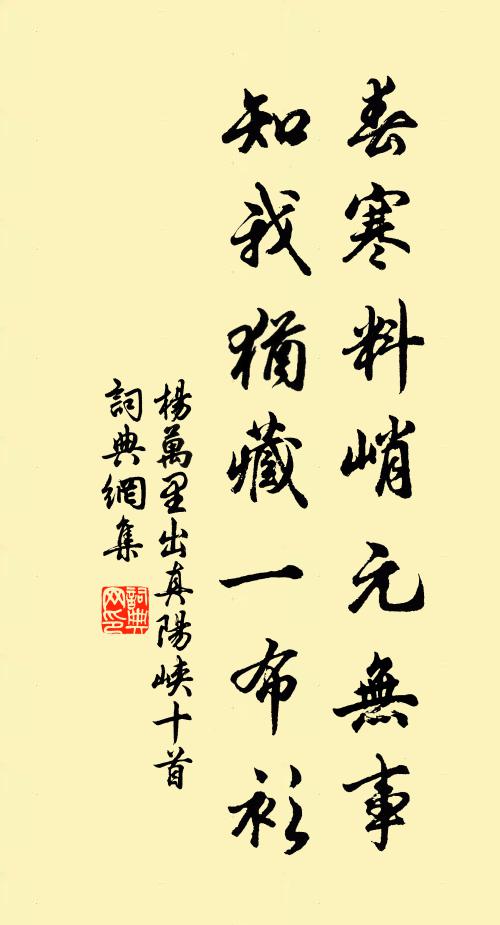 春寒料峭元無事
知我猶藏一布衫
楊萬里出真陽峽十首
詞典網集
詞典网印